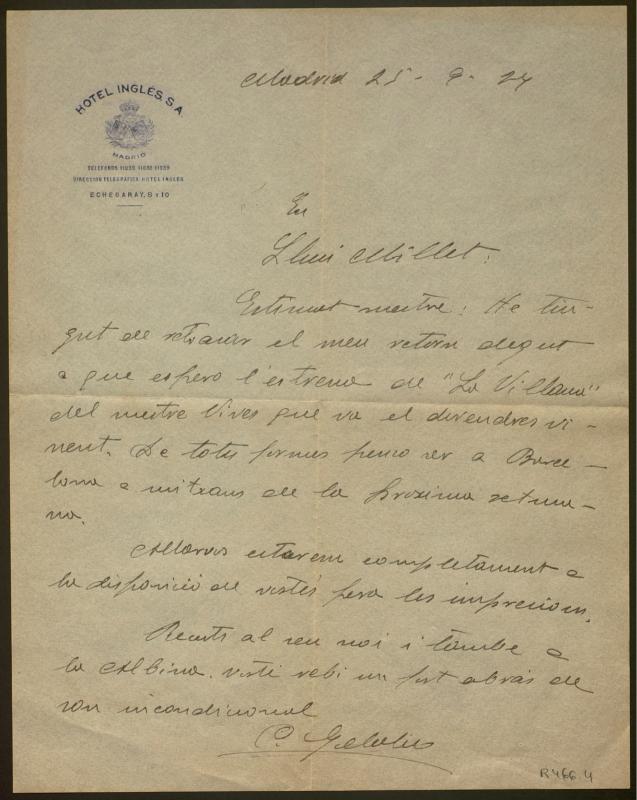 HOTEL INGLÉS. S.A.
MADRID
DIRECCION TELEGRAFICA HOTEL INGLES
ECHEGARAY, 8 Y 10
Madrid 25 - 9 -
En
Lluis Millet:
Estimat mestre: He tin-
gut de retrasar el meu retorn degut
a que espero l'estrena de "La Villana"
del mestre Vives que va el divendres vi-
nent. De totes formes penso ser a Barce-
lona a mitxans de la proxima setma-
na.
Allavors estarem completament a
la disposició de vostés pera les impresions.
Recorts al seu noi i tambe a
la Albina. Vosté rebi un fort abràs de
son incondicional
C.
R 466.4